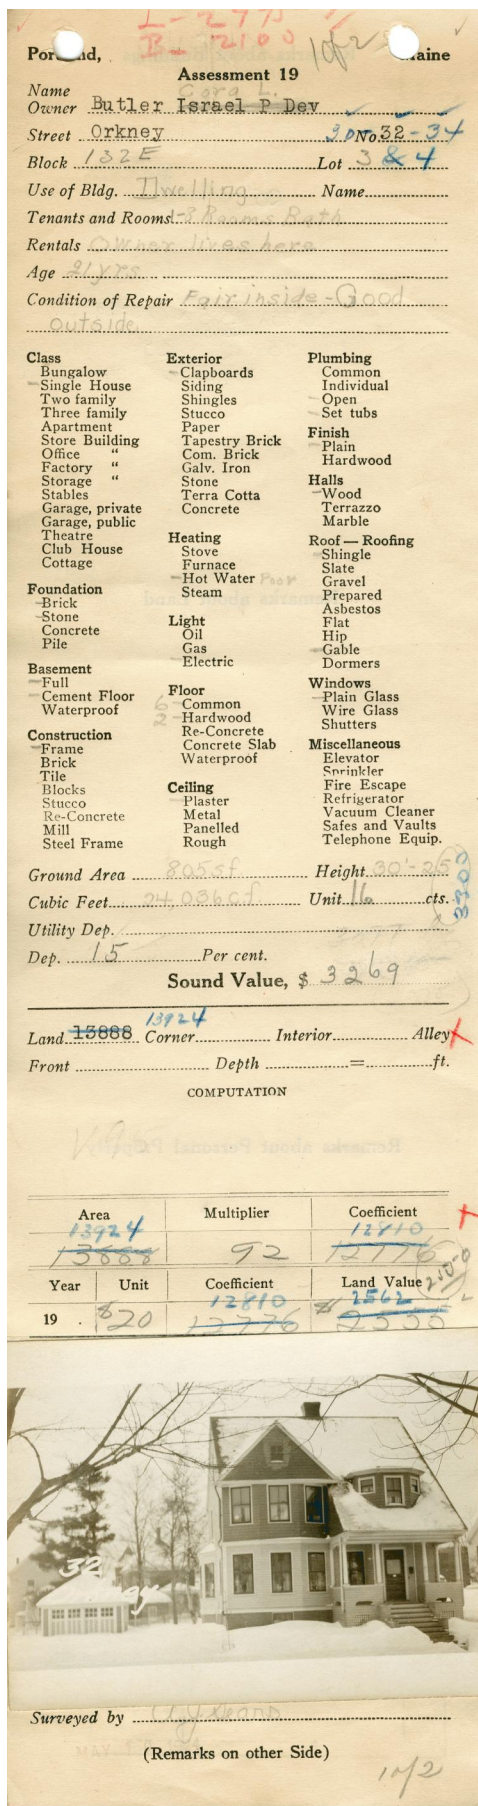 L-2975
B-2100 1 of 2
Portland, Maine
Assessment 19
Cora L.
Name
Owner Butler Israel P Dev
Street Orkney 30- No 32-34
Block 132E Lot 3 & 4
Use of Bldg. Dwelling Name
Tenants and Rooms 1-8 Rooms Bath
Rentals Owner lives here
Age 21 yrs.
Condition of Repair Fair inside - Good
outside
Class
Bungalow
Single House
Two family
Three family
Apartment
Store Building
Office "
Factory "
Storage "
Stables
Garage, private
Garage, public
Theatre
Club House
Cottage
Foundation
Brick
Stone
Concrete
Pile
Basement
Full
Cement Floor
Waterproof
Construction
Frame
Brick
Tile
Blocks
Stucco
Re-Concrete
Mill
Steel Frame
Exterior
Clapboards
Siding
Shingles
Stucco
Paper
Tapestry Brick
Com. Brick
Galv. Iron
Stone
Terra Cotta
Concrete
Heating
Stove
Furnace
Hot Water Poor
Steam
Light
Oil
Gas
Electric
Floor
6 Common
2 Hardwood
Re-Concrete
Concrete Slab
Waterproof
Ceiling
Plaster
Metal
Panelled
Rough
Plumbing
Common
Individual
Open
Set tubs
Finish
Plain
Hardwood
Halls
Wood
Terrazzo
Marble
Roof — Roofing
Shingle
Slate
Gravel
Prepared
Asbestos
Flat
Hip
Gable
Dormers
Windows
Plain Glass
Wire Glass
Shutters
Miscellaneous
Elevator
Sprinkler
Fire Escape
Refrigerator
Vacuum Cleaner
Safes and Vaults
Telephone Equip.
Ground Area 805 sf Height 30'-25
Cubic Feet 24,036 cf Unit 16 cts.
3300
Utility Dep.
Dep. 15 Per cent.
Sound Value, $ 3269
13924
Land 13888 Corner Interior Alley
Front Depth = ft.
COMPUTATION
Area Multiplier Coefficient
13924 12810
13888 92 12776
Year Unit Coefficient Land Value
12810 2562
19 . $20 12776 $ 2555
32
Surveyed by
(Remarks on other Side)
1 of 2